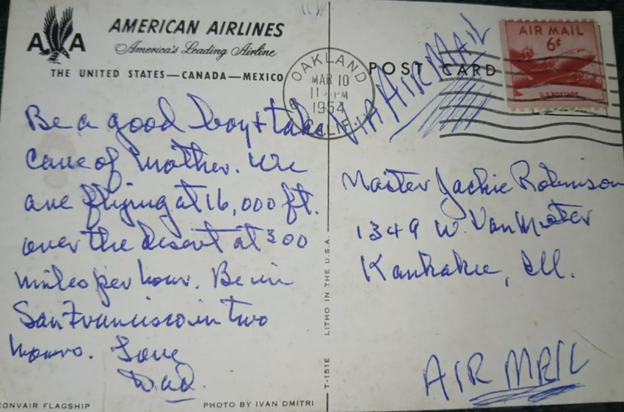 AA
AMERICAN AIRLINES
America's Leading Airline
THE UNITED STATES—CANADA—MEXICO
Be a good boy + take
care of Mother. We
are flying at 16,000 ft.
over the desert at 300
miles per hour. Be in
San Francisco in two
hours. Love
Dad.
CONVAIR FLAGSHIP
PHOTO BY IVAN DMITRI
T-151E LITHO IN THE U.S.A.
OAKLAND
MAR 10
PM
1954
CALIF.
POST CARD
VIA AIR MAIL
AIR MAIL
6¢
U.S. POSTAGE
Master Jackie Robinson
1349 W. Van Meter
Kankakee, Ill.
AIR MAIL